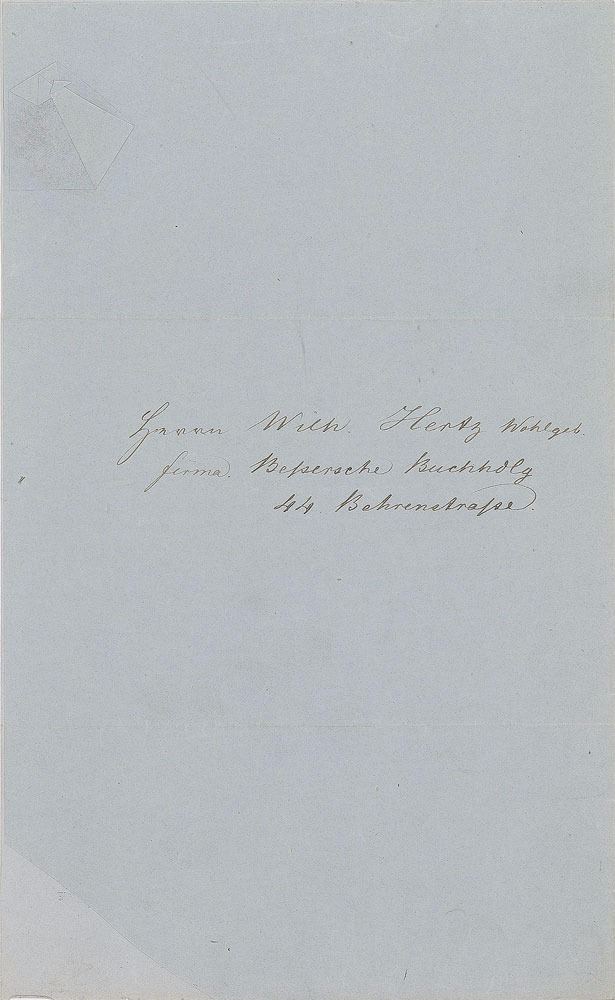 Herrn Wilh. Hertz Wohlgeb.
firma. Beßersche Buchhdlg
44 Behrenstraße.